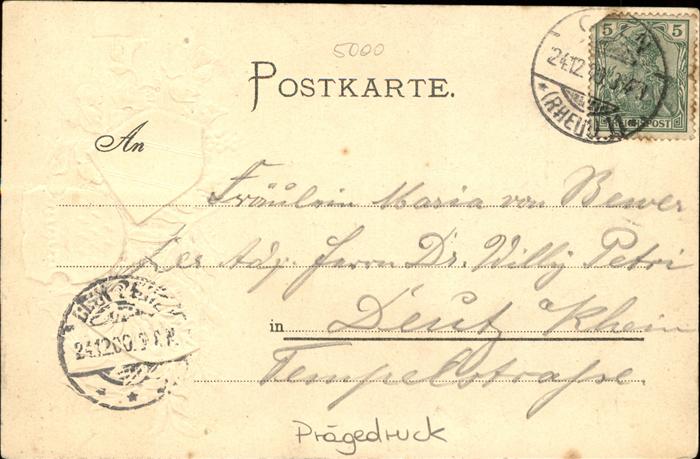 5000
POSTKARTE.
5 5
REICHSPOST
24.12.00.
* (RHEIN)
An
Fräulein Maria von Bewer
Adr. Herrn Dr. Willy Petri
in Deutz Rhein
Tempelstraße.
24.12.00.
Prägedruck